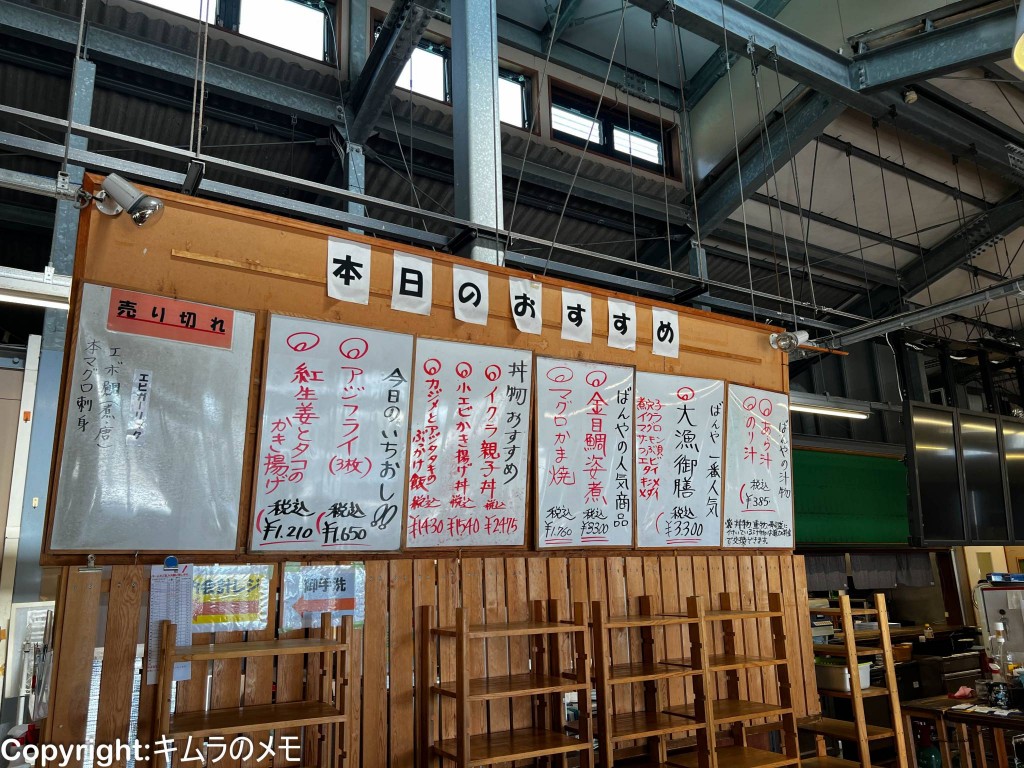 本日のおすすめ
売り切れ
エビガーリック
エボ鯛煮唐
本マグロ刺身
今日のいちおし!!
アジフライ(3枚)
税込
¥1,650
紅生姜とタコの
かき揚げ
税込
¥1,210
丼物おすすめ
イクラ親子丼
税込
¥2475
小エビかき揚げ丼
税込
¥1540
カジメとアジタタキの
ぶっかけ飯
税込
¥1430
ばんやの人気商品
金目鯛姿煮
税込
¥3300
マグロかま焼
税込
¥1,760
ばんや一番人気
大漁御膳
税込
¥3.300
ばんやの汁物
あら汁
のり汁
税込
¥385
で交換できます。
会計レジ
御手洗
Copyright:キムラのメモ